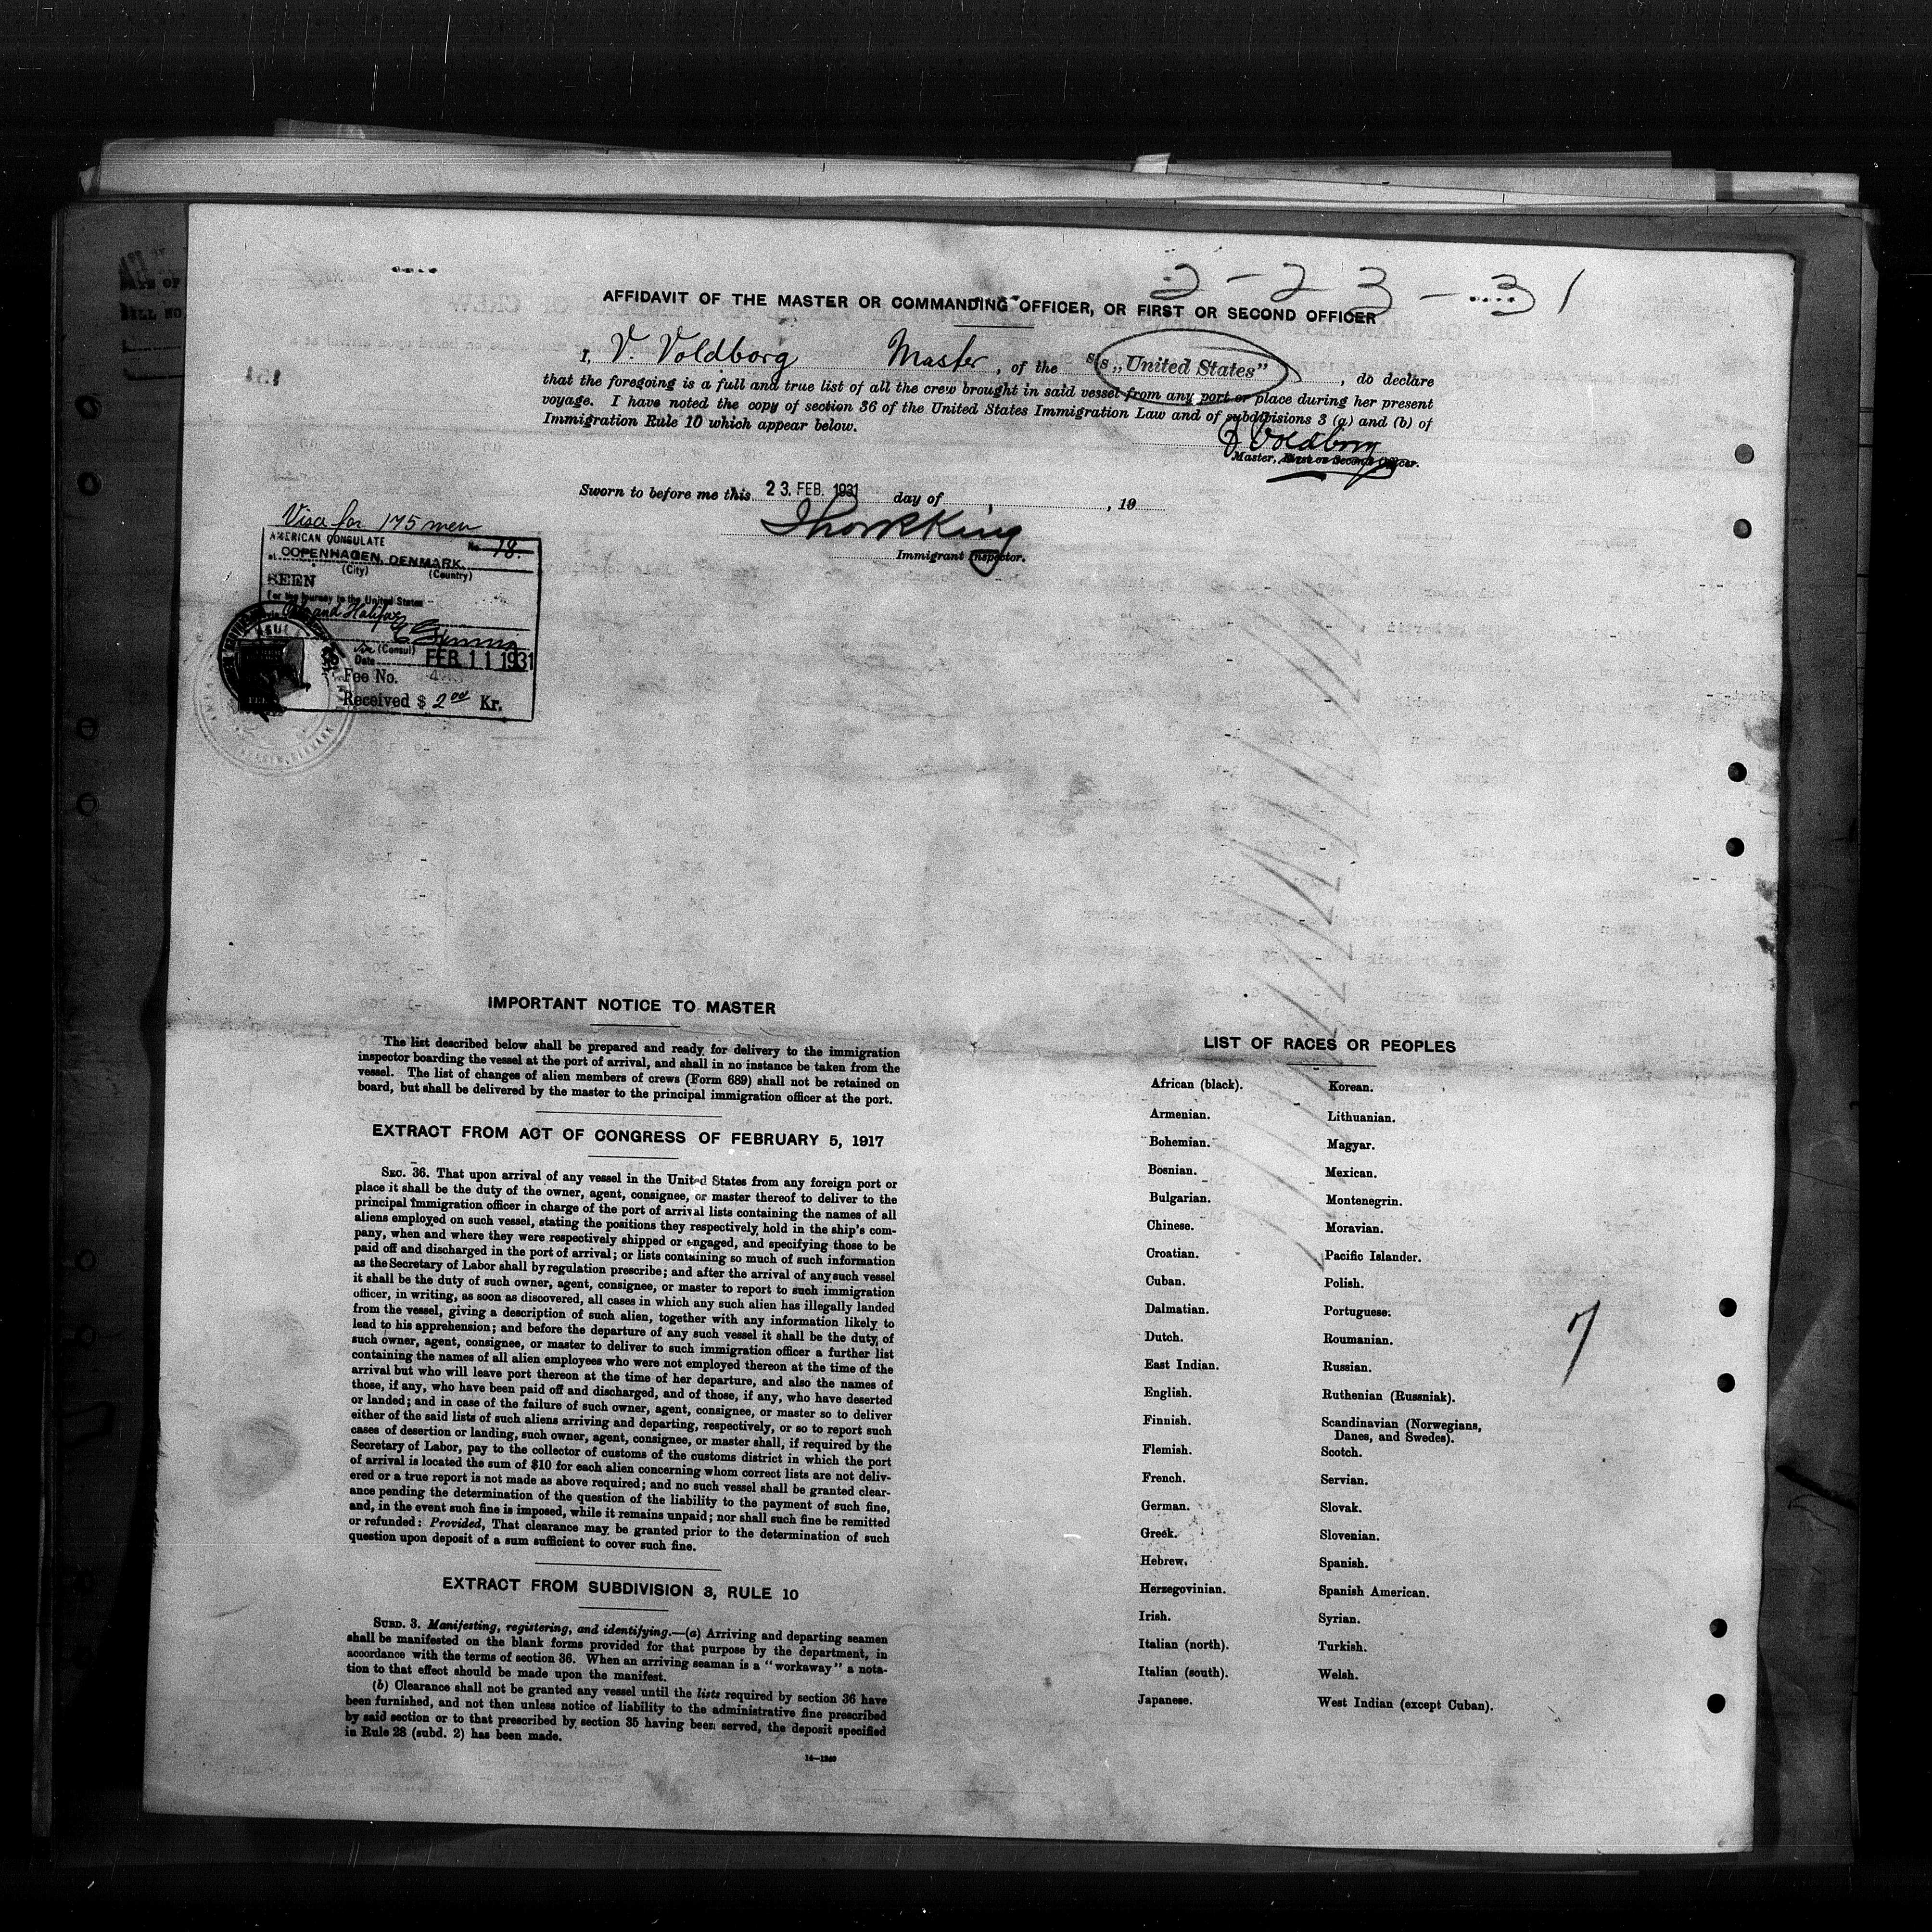 2-23-31
AFFIDAVIT OF THE MASTER OR COMMANDING OFFICER, OR FIRST OR SECOND OFFICER
I, V. Voldborg Master, of the S/s „United States”, do declare
that the foregoing is a full and true list of all the crew brought in said vessel from any port or place during her present
voyage. I have noted the copy of section 36 of the United States Immigration Law and of subdivisions 3 (a) and (b) of
Immigration Rule 10 which appear below.
V Voldborg
Master, First or Second Officer.
Sworn to before me this 23. FEB. 1931 day of , 19
King
Immigrant Inspector.
Visa for 175 men
AMERICAN CONSULATE No. 78.
at COPENHAGEN, DENMARK.
(City) (Country)
SEEN
for the journey to the United States
Oslo and Halifax
(Consul)
Date FEB. 11 1931
Fee No.
Received $ 2.00 Kr.
IMPORTANT NOTICE TO MASTER
The list described below shall be prepared and ready for delivery to the immigration
inspector boarding the vessel at the port of arrival, and shall in no instance be taken from the
vessel. The list of changes of alien members of crews (Form 689) shall not be retained on
board, but shall be delivered by the master to the principal immigration officer at the port.
EXTRACT FROM ACT OF CONGRESS OF FEBRUARY 5, 1917
SEC. 36. That upon arrival of any vessel in the United States from any foreign port or
place it shall be the duty of the owner, agent, consignee, or master thereof to deliver to the
principal immigration officer in charge of the port of arrival lists containing the names of all
aliens employed on such vessel, stating the positions they respectively hold in the ship's com-
pany, when and where they were respectively shipped or engaged, and specifying those to be
paid off and discharged in the port of arrival; or lists containing so much of such information
as the Secretary of Labor shall by regulation prescribe; and after the arrival of any such vessel
it shall be the duty of such owner, agent, consignee, or master to report to such immigration
officer, in writing, as soon as discovered, all cases in which any such alien has illegally landed
from the vessel, giving a description of such alien, together with any information likely to
lead to his apprehension; and before the departure of any such vessel it shall be the duty of
such owner, agent, consignee, or master to deliver to such immigration officer a further list
containing the names of all alien employees who were not employed thereon at the time of the
arrival but who will leave port thereon at the time of her departure, and also the names of
those, if any, who have been paid off and discharged, and of those, if any, who have deserted
or landed; and in case of the failure of such owner, agent, consignee, or master so to deliver
either of the said lists of such aliens arriving and departing, respectively, or so to report such
cases of desertion or landing, such owner, agent, consignee, or master shall, if required by the
Secretary of Labor, pay to the collector of customs of the customs district in which the port
of arrival is located the sum of $10 for each alien concerning whom correct lists are not deliv-
ered or a true report is not made as above required; and no such vessel shall be granted clear-
ance pending the determination of the question of the liability to the payment of such fine,
and, in the event such fine is imposed, while it remains unpaid; nor shall such fine be remitted
or refunded: Provided, That clearance may be granted prior to the determination of such
question upon deposit of a sum sufficient to cover such fine.
EXTRACT FROM SUBDIVISION 3, RULE 10
SUBD. 3. Manifesting, registering, and identifying.—(a) Arriving and departing seamen
shall be manifested on the blank forms provided for that purpose by the department, in
accordance with the terms of section 36. When an arriving seaman is a "workaway" a nota-
tion to that effect should be made upon the manifest.
(b) Clearance shall not be granted any vessel until the lists required by section 36 have
been furnished, and not then unless notice of liability to the administrative fine prescribed
by said section or to that prescribed by section 35 having been served, the deposit specified
in Rule 28 (subd. 2) has been made.
14—1240
LIST OF RACES OR PEOPLES
African (black). Korean.
Armenian. Lithuanian.
Bohemian. Magyar.
Bosnian. Mexican.
Bulgarian. Montenegrin.
Chinese. Moravian.
Croatian. Pacific Islander.
Cuban. Polish.
Dalmatian. Portuguese.
Dutch. Roumanian.
East Indian. Russian.
English. Ruthenian (Russniak).
Finnish. Scandinavian (Norwegians,
Danes, and Swedes).
Flemish. Scotch.
French. Servian.
German. Slovak.
Greek. Slovenian.
Hebrew. Spanish.
Herzegovinian. Spanish American.
Irish. Syrian.
Italian (north). Turkish.
Italian (south). Welsh.
Japanese. West Indian (except Cuban).
7